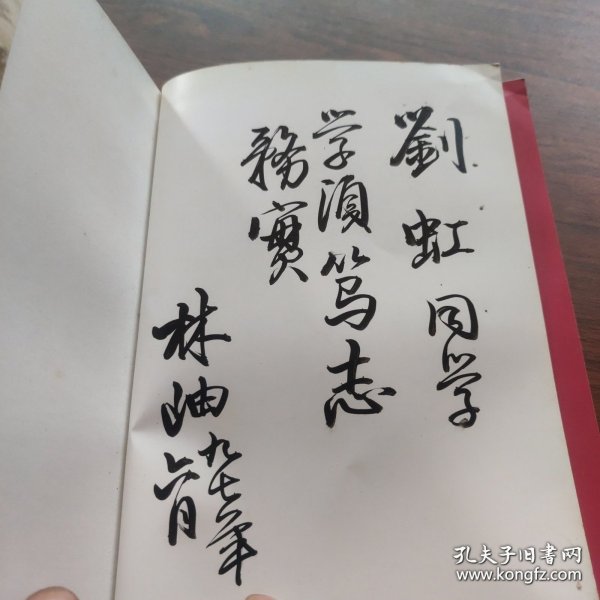 劉虹同学
学須笃志
務實
林岫
九七年
六月
孔夫子旧书网
www.kongfz.com